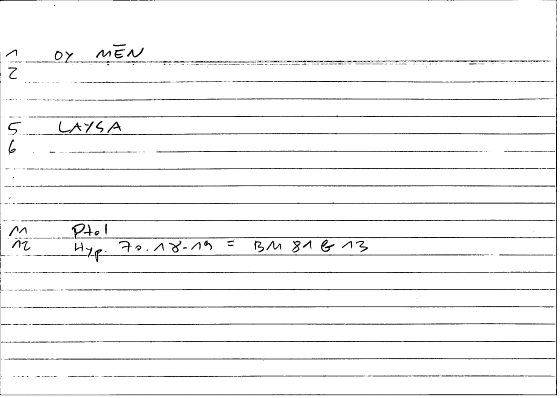 1 OY MĒN
2
5 LAYSA
6
11 Ptol
12 Hyp. 70.18-19 = BM 81 b 13